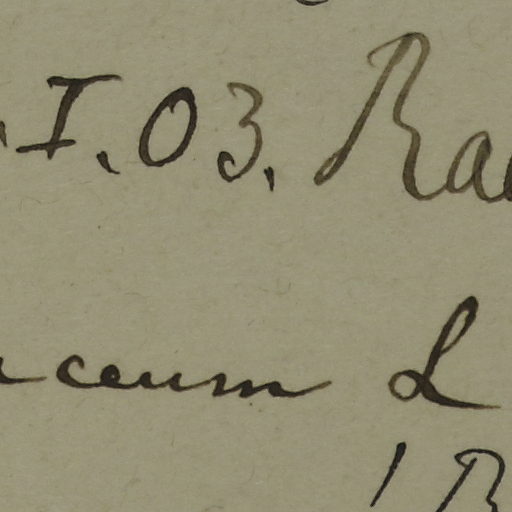 .I.03. Ra
ceum L